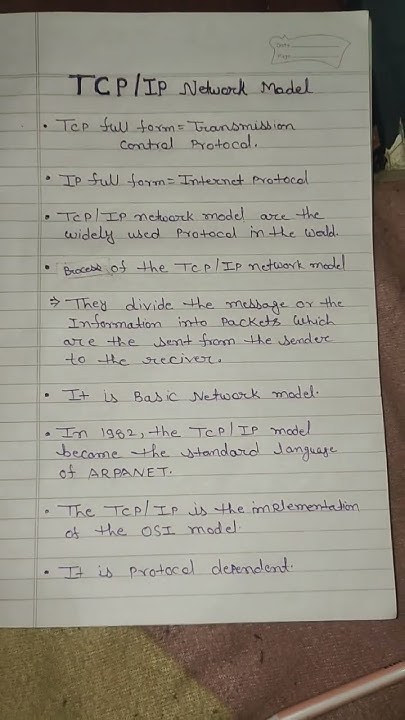 Date
Page
TCP/IP Network Model
• TCP full form = Transmission
control Protocol.
• IP full form = Internet Protocol
• TCP/IP network model are the
widely used Protocol in the world.
• Process of the TCP/IP network model
⇒ They divide the message or the
Information into Packets which
are the sent from the sender
to the reciver.
• It is Basic Network model.
• In 1982, the TCP/IP model
become the standard language
of ARPANET.
• The TCP/IP is the implementation
of the OSI model.
• It is Protocol dependent.